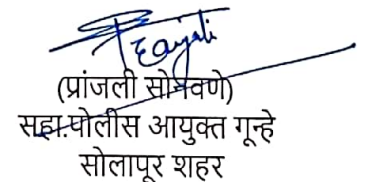 (प्रांजली सोनवणे)
सहा.पोलीस आयुक्त गून्हे
सोलापूर शहर